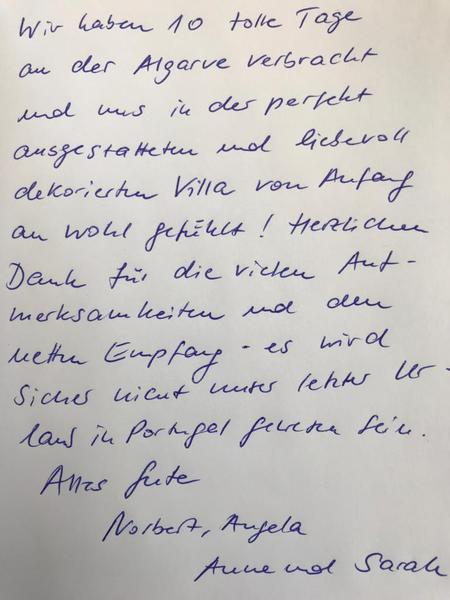 Wir haben 10 tolle Tage
an der Algarve verbracht
und uns in der perfekt
ausgestatteten und liebevoll
dekorierten Villa von Anfang
an wohl gefühlt! Herzlichen
Dank für die vielen Auf-
merksamkeiten und den
netten Empfang - es wird
sicher nicht unser letzter Ur-
laub in Portugal gewesen sein.
Alles Gute
Norbert, Angela
Anne und Sarah